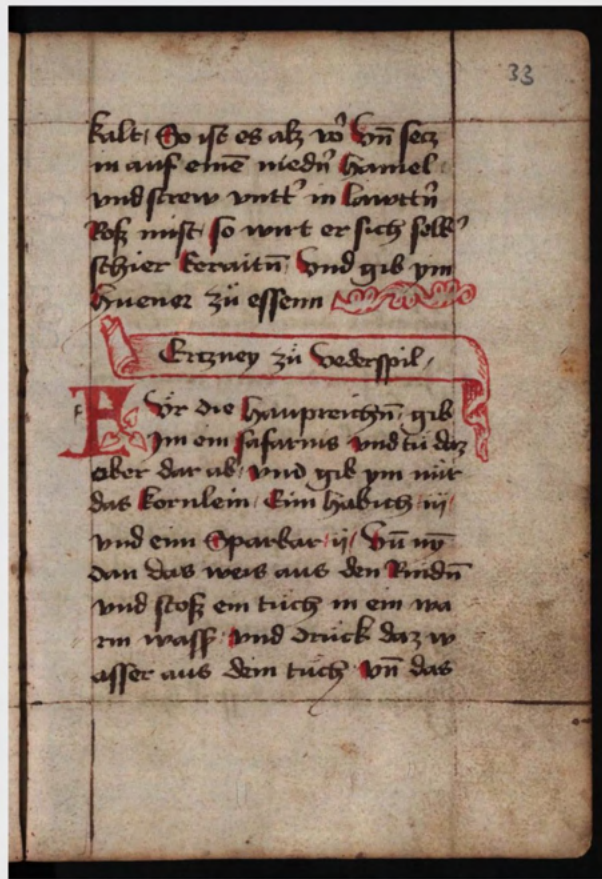 33
kalt. So ist es als vor̉ Vn̄ secz
in auf einē niedn̉ hamel
vnd strew vntt̉ in lawttn̉
Roß mist. so wirt er sich selb̉
schier keraitn̄ Vnd gib ym
huener zü essenn
Ertzney zü vederspil.
Für die haupreichn̄. gib
Im ein safarnis vnd tü daz
ober dar ab. vnd gib ym nür
das kornlein. Eim habich iij
vnd eim Sparbar ij. Vn̄ nȳ
dan das weis aus den Rindn̄
vnd stoß ein tüch in ein wa
rm wasß. vnd drück daz w
asser aus dem tüch. vn̄ das